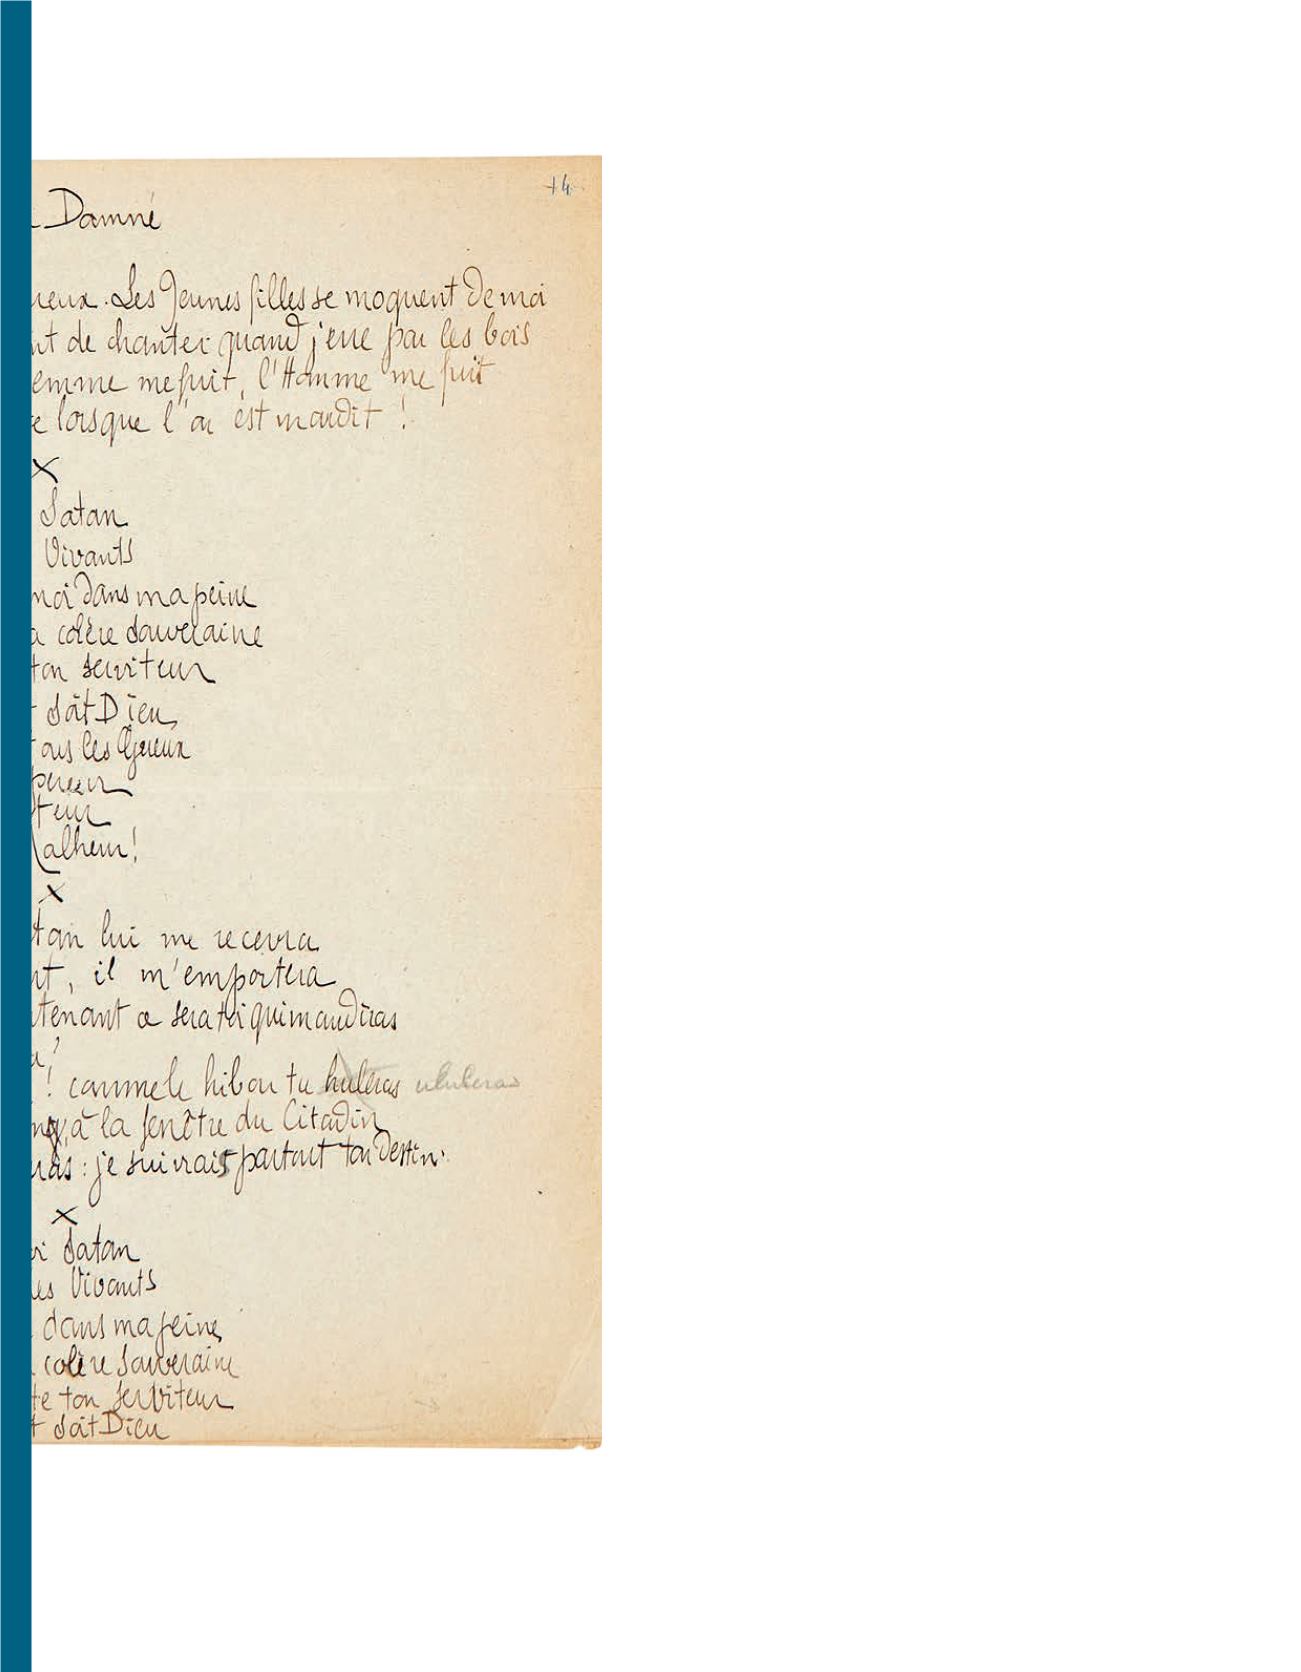 14
Damné
ueux. Les Jeunes filles se moquent de moi
nt de chanter quand j'erre par les bois
emme me fuit, l'Homme me fuit
e lorsque l'on est maudit !
X
Satan
Vivants
moi dans ma peine
a colère souveraine
ton serviteur
t soit Dieu
tous les Gueux
pereur
teur
Malheur !
X
tan lui me recevra
nt, il m'emportera
tenant ce sera toi qui maudiras
a !
! comme le hibou tu huleras ululeras
à la fenêtre du Citadin
ras : je suivrais partout ton Destin.
X
oi Satan
es Vivants
dans ma peine
colère Souveraine
te ton serviteur
t soit Dieu